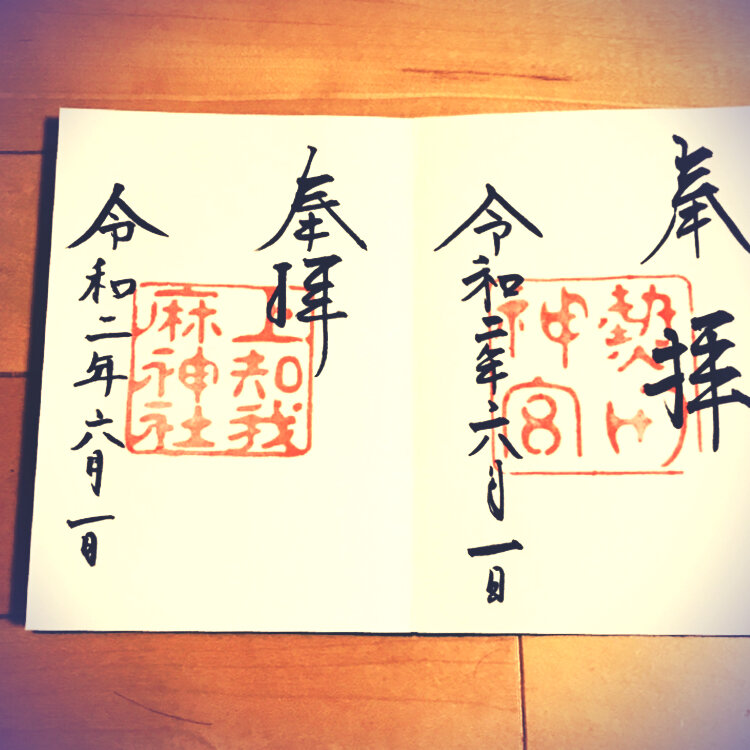 奉拝
熱田
神宮
令和二年六月一日
奉拝
上知我
麻神社
令和二年六月一日